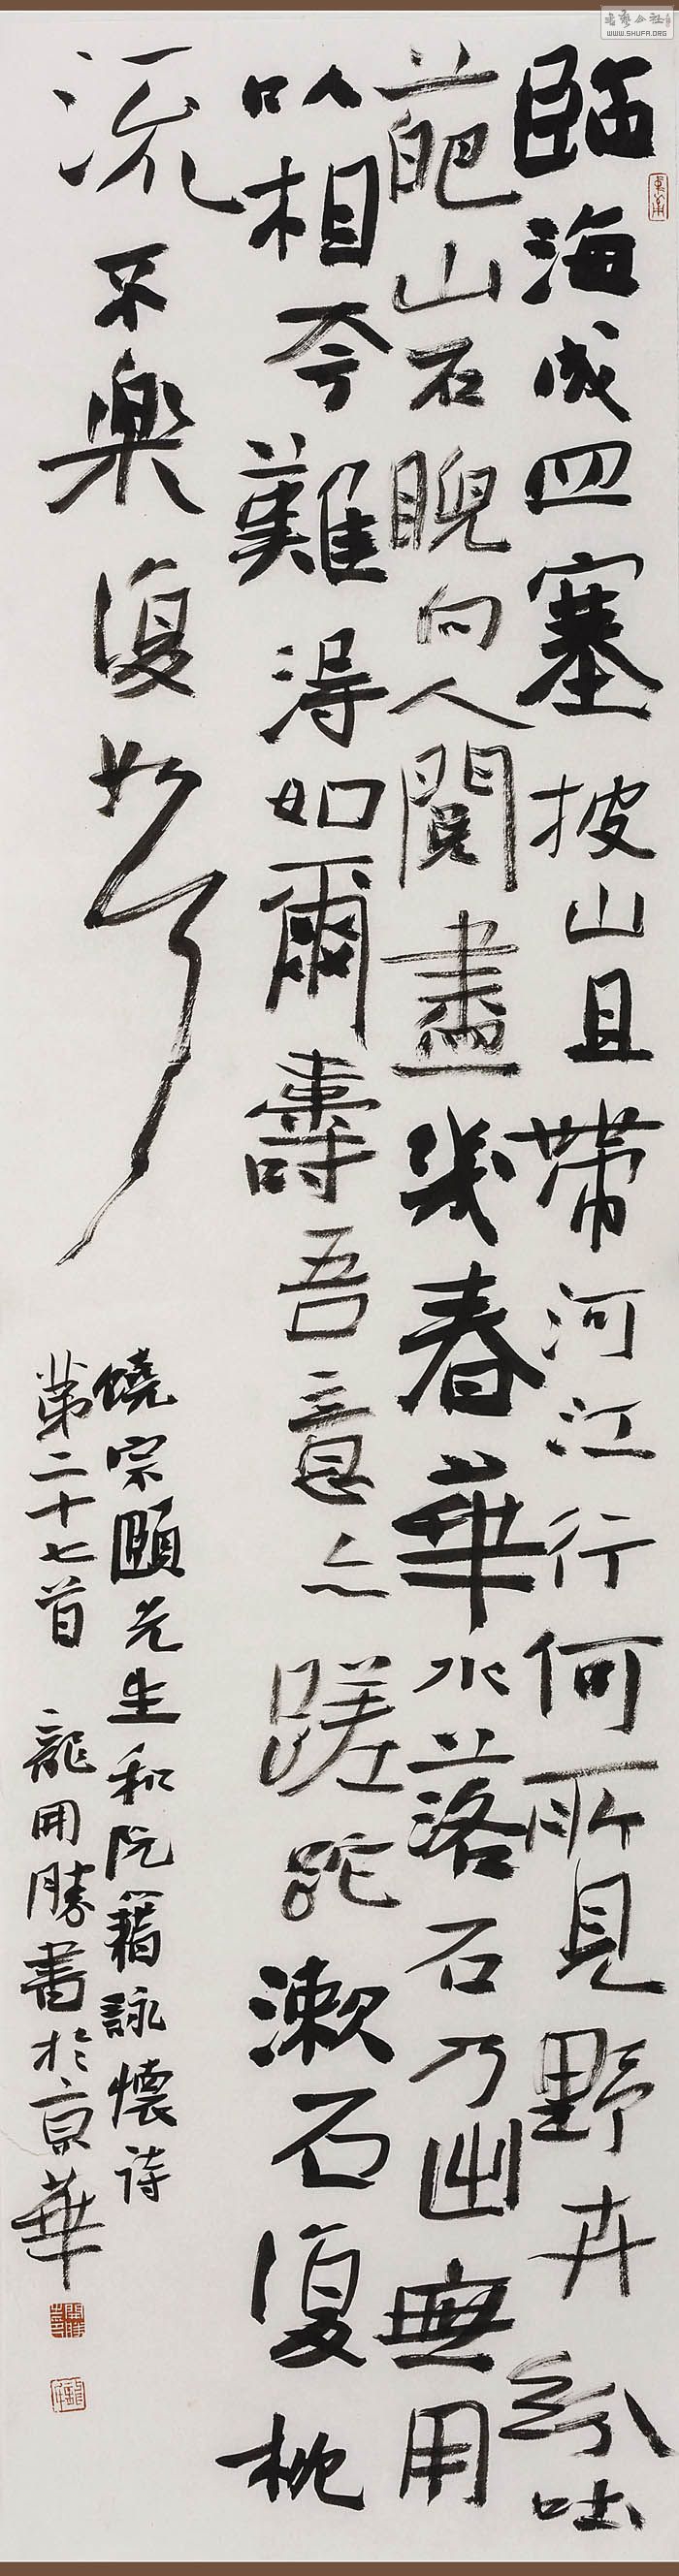 臨海成四塞披山且帶河江行何所見野卉紛吐
葩山石睨向人閱盡幾春華水落石乃出無用
以相夸難得如爾壽吾意亦蹉跎漱石復枕
流不樂復如何
饒宗頤先生和阮籍詠懷诗
第二十七首 龍開勝書於京華
書藝公社
WWW.SHUFA.ORG